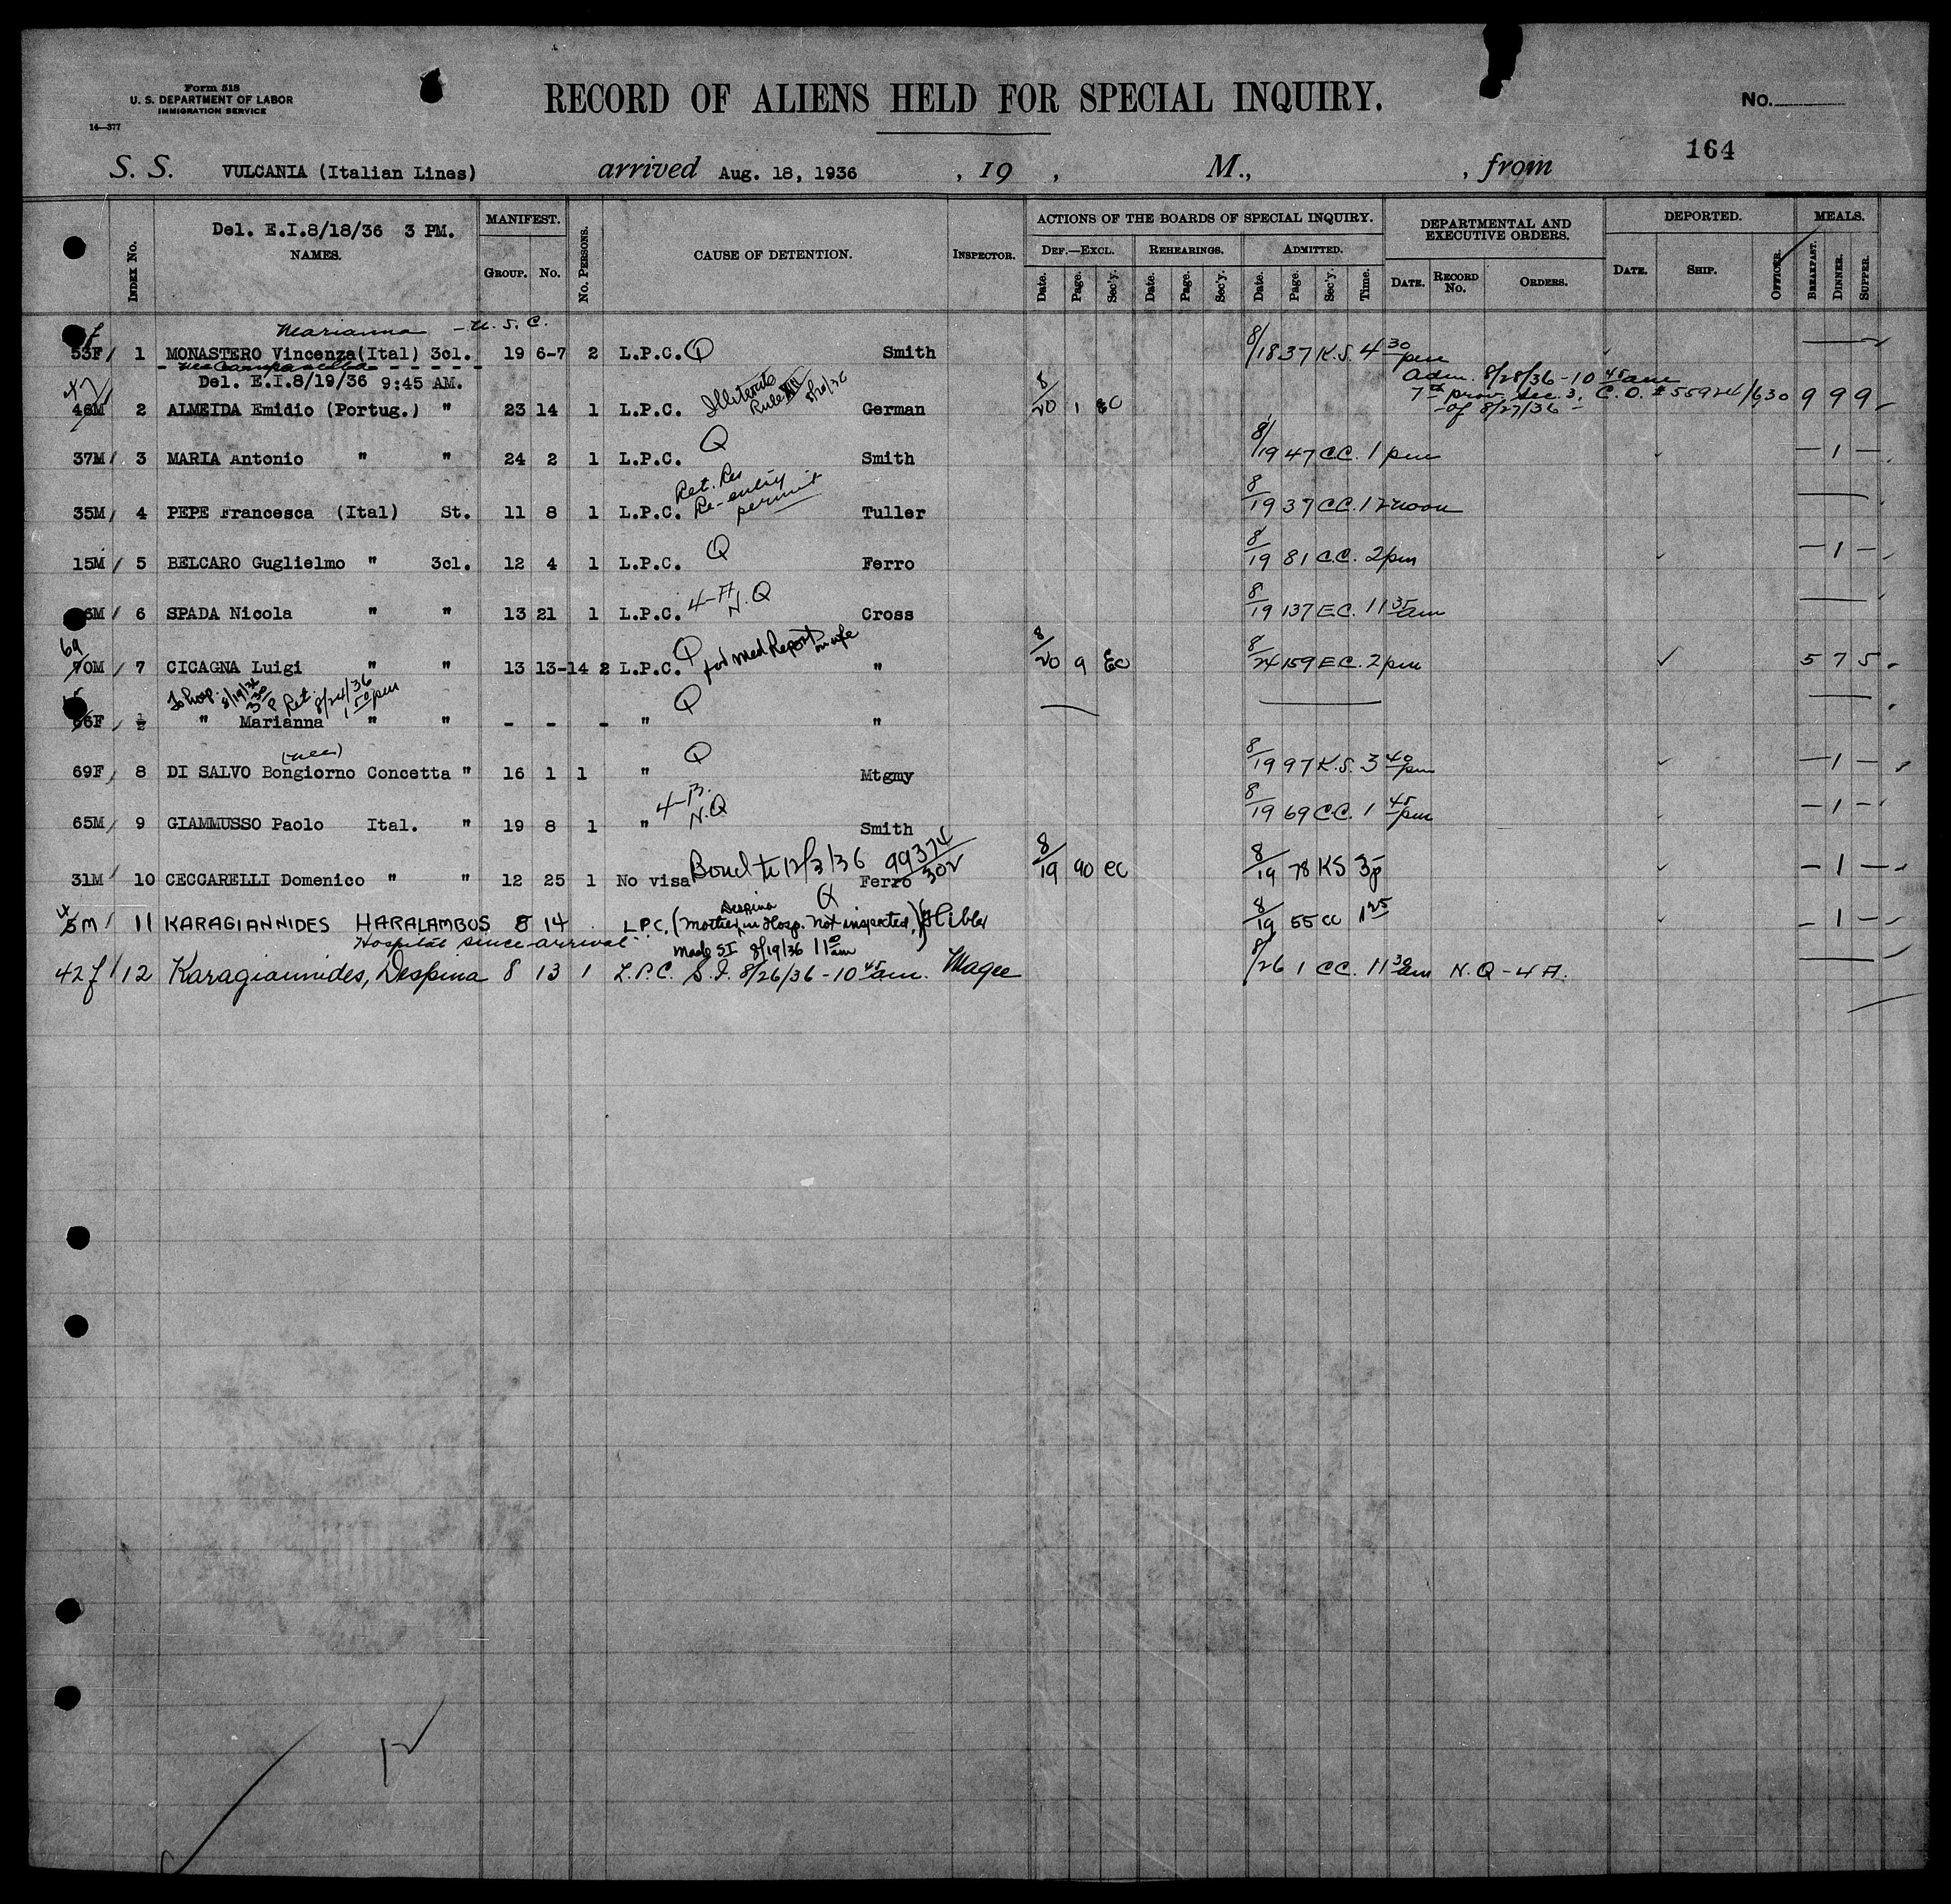 Form 518
U. S. DEPARTMENT OF LABOR
IMMIGRATION SERVICE
14—377
RECORD OF ALIENS HELD FOR SPECIAL INQUIRY.
No.
164
S. S. VULCANIA (Italian Lines) arrived Aug. 18, 1936 , 19 , M., , from
INDEX No.
Del. E.I.8/18/36 3 PM.
NAMES.
MANIFEST.
GROUP. No.
No. PERSONS.
CAUSE OF DETENTION.
INSPECTOR.
ACTIONS OF THE BOARDS OF SPECIAL INQUIRY.
DEF.—EXCL. REHEARINGS. ADMITTED.
Date. Page. Sec'y. Date. Page. Sec'y. Date. Page. Sec'y. Time.
DEPARTMENTAL AND
EXECUTIVE ORDERS.
DATE. RECORD No. ORDERS.
DEPORTED.
DATE. SHIP. OFFICER.
MEALS.
BREAKFAST. DINNER. SUPPER.
Marianna - U.S.C.
53F 1 MONASTERO Vincenza(Ital) 3cl. 19 6-7 2 L.P.C. Q Smith 8/18 37 K.S. 4 30 pm
nee Campanella
Del. E.I.8/19/36 9:45 AM.
Adm. 8/28/36 - 10 45 am
47
46M 2 ALMEIDA Emidio (Portug.) " 23 14 1 L.P.C. Illiterate Rule VIII 8/20/36 German 8/20 1 EC 7th prov. Sec. 3, C.O. # 55924/630 9 9 9
of 8/27/36
37M 3 MARIA Antonio " " 24 2 1 L.P.C. Q Smith 8/19 47 CC. 1 pm — 1 —
35M 4 PEPE Francesca (Ital) St. 11 8 1 L.P.C. Ret. Res Re-entry permit Tuller 8/19 37 CC. 12 noon
15M 5 BELCARO Guglielmo " 3cl. 12 4 1 L.P.C. Q Ferro 8/19 81 C.C. 2 pm — 1 —
6M 6 SPADA Nicola " " 13 21 1 L.P.C. 4-A N.Q Cross 8/19 137 EC. 11 35 am
69
70M 7 CICAGNA Luigi " " 13 13-14 2 L.P.C. Q for Med Report on wife " 8/20 9 EC 8/24 159 EC. 2 pm 5 7 5
To hosp. 8/19/36 3 30 P Ret. 8/24/36 1 50 pm
66F " Marianna " " - - - " Q "
(nee)
69F 8 DI SALVO Bongiorno Concetta " 16 1 1 " Q Mtgmy 8/19 97 K.S. 3 40 pm — 1 —
65M 9 GIAMMUSSO Paolo Ital. " 19 8 1 " 4-B. N.Q Smith 8/19 69 CC. 1 45 pm — 1 —
31M 10 CECCARELLI Domenico " " 12 25 1 No visa Bond to 12/3/36 99374/302 Ferro 8/19 90 EC 8/19 78 KS 3p — 1 —
Q
5M 11 KARAGIANNIDES HARALAMBOS 8 14 L.P.C. (Mother Despina in Hosp. Not inspected.) 8/19 55 CC 1 25 — 1 —
Hospital since arrival Made SI 8/19/36 11 am
42f 12 Karagiannides, Despina 8 13 1 L.P.C. S.I. 8/26/36 - 10 45 am. Magee 8/26 1 CC. 11 30 am N.Q - 4A.
12